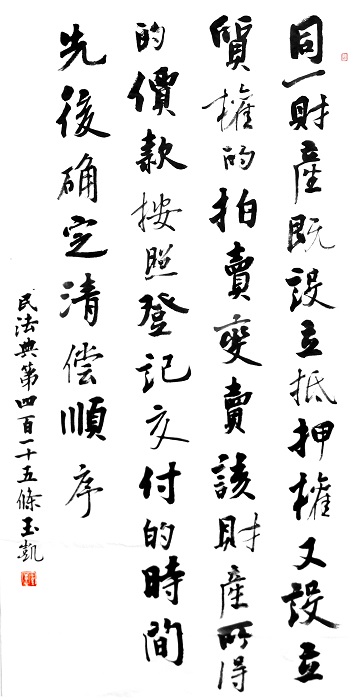 同一財產既設立抵押權又設立
質權的拍賣變賣該財產所得
的價款按照登記交付的時間
先後确定清偿順序
民法典第四百一十五條玉凱